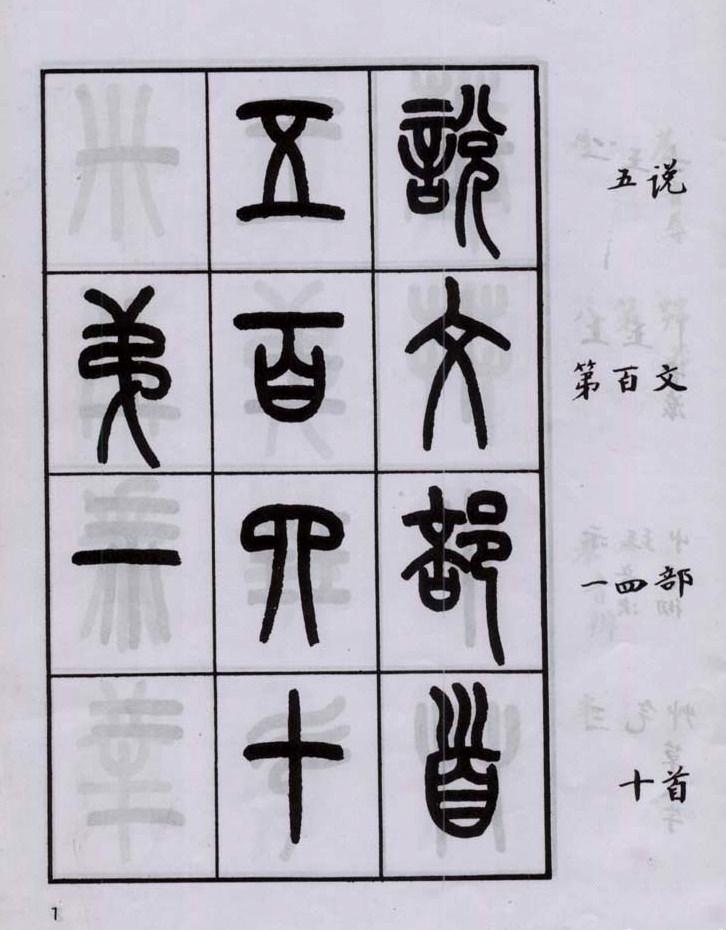 说文部首
五百四十
第一
說文部首
五百四十
弟一
1